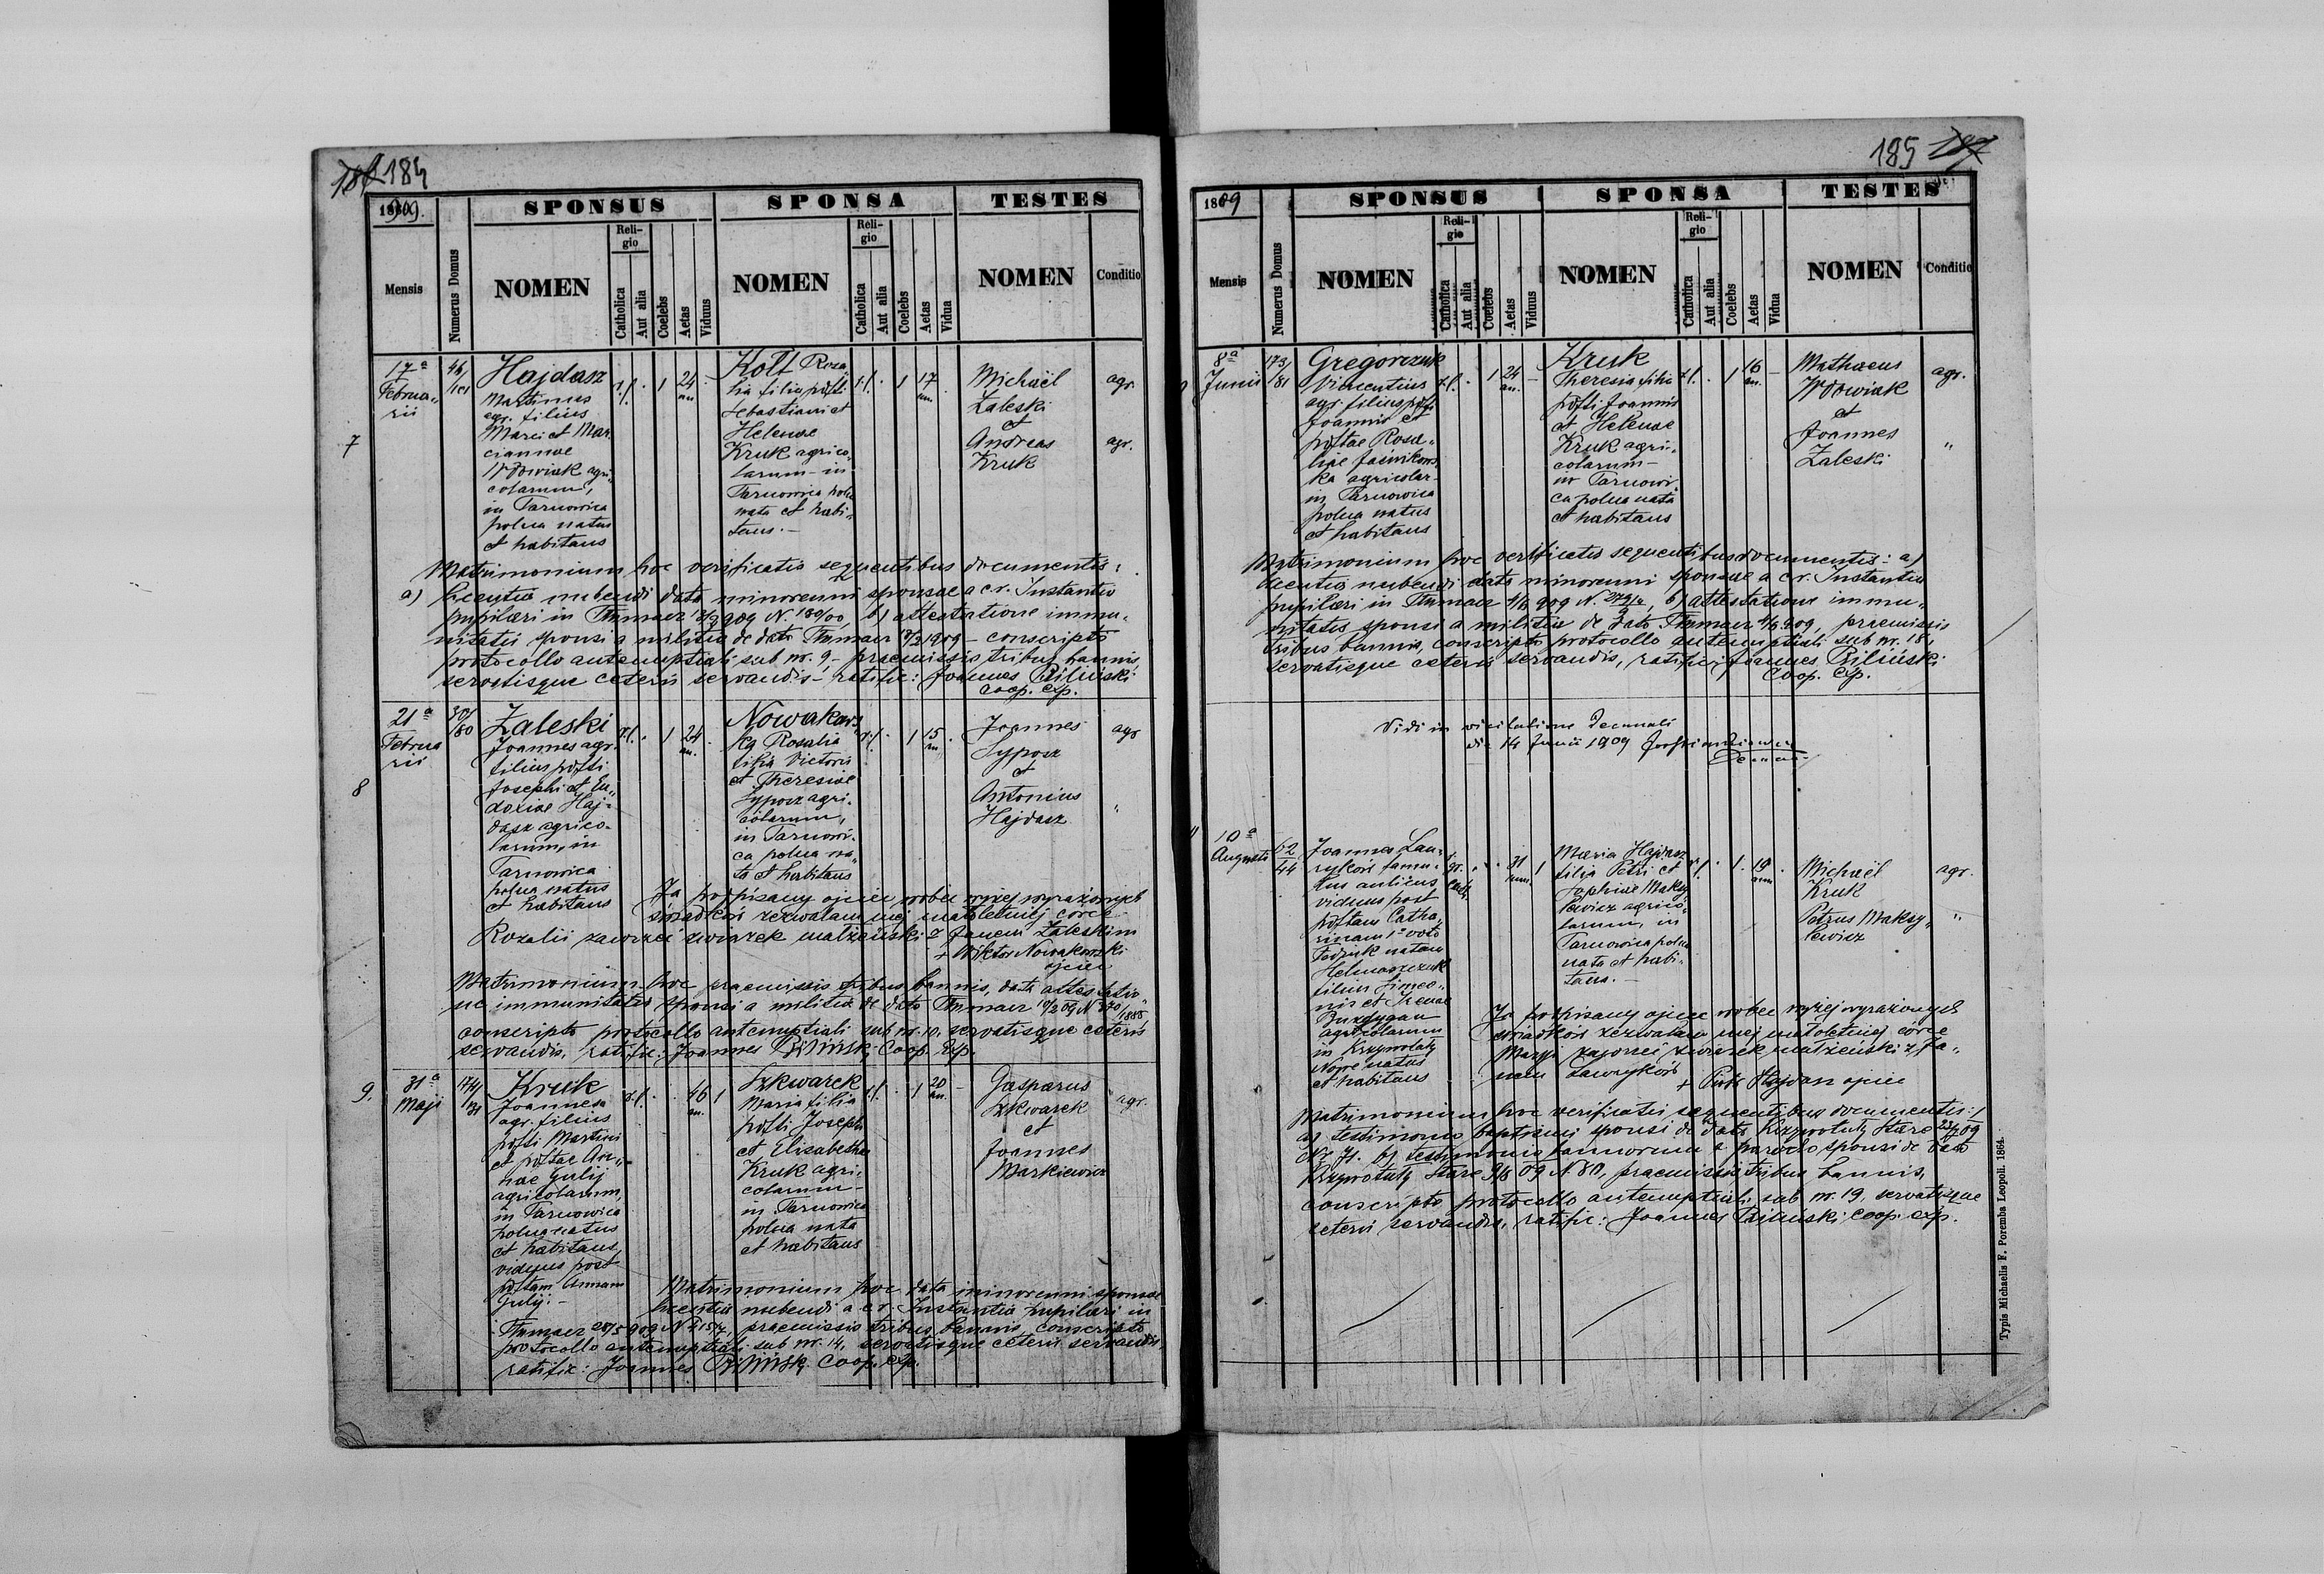 184
1909.
SPONSUS
SPONSA
TESTES
Mensis
Numerus Domus
NOMEN
Religio
Catholica
Aut alia
Coelebs
Aetas
Viduus
NOMEN
Religio
Catholica
Aut alia
Coelebs
Aetas
Vidua
NOMEN
Conditio
7
17a
Februa„
rii
46/
Hajdasz
Martinus
agr. filius
Marci et Mar„
ciannae
Wdowiak agri„
colarum,
in Tarnowica
polna natus
et habitans
r.l.
1
24
an
Kott Rosa„
lia filia p̃sti
Sebastiani et
Helenae
Kruk agrico„
larum - in
Tarnowica polna
nata et habi„
tans. -
r.l.
1
17
an
Michaël
Zaleski
et
Andreas
Kruk
agr.
agr.
Matrimonium hoc verificatis sequentibus documentis:
a) licentia nubendi data minorenni sponsae a c.r. Instantia
pupilari in Tłumacz 909 N. b) attestatione immu„
nitatis sponsi a militia de dato Tłumacz 1909 - conscripto
protocollo antenuptiali sub nr. 9, - praemissis tribus bannis,
servatisque ceteris servandis - ratific: Joannes Biliński
Coop. exp.
8
21a
Februa
rii
30/
80
Zaleski
Joannes agr.
filius p̃sti
Josephi et Eu„
doxiae Haj„
dasz agrico„
larum, in
Tarnowica
polna natus
et habitans
r.l.
1
24
an.
Nowakows„
ka Rosalia
filia Victoris
et Theresiae
Syposz agri„
colarum,
in Tarnowi„
ca polna na„
ta et habitans
r.l.
1
15
an
Joannes
Syposz
et
Antonius
Hajdasz
agr
„
Ja podpisany ojciec wobec wyżej wyrażonych
świadków zezwalam mej małoletniej córce
Rozalii zawrzeć związek małżeński z Janem Zaleskim
+ Wiktor Nowakowski
ojciec
Matrimonium hoc praemissis tribus bannis, data attestatio„
ne immunitatis sponsi a militia de dato Tłumacz 10/2 09 N
conscripto protocollo antenuptiali sub nr. 10. servatisque ceteris
servandis, ratific: Joannes Biliński Coop. Exp.
9.
31a
Maji
Kruk
Joannes
agr. filius
p̃sti Martini
et p̃stae An„
nae Gulij
agricolarum,
in Tarnowica
polna natus
et habitans,
viduus post
p̃stam Annam
Gulij. -
r.l.
46
an.
1
Szkwarek
Maria filia
p̃sti Josephi
et Elisabethae
Kruk agri„
colarum -
in Tarnowica
polna nata
et habitans
r.l.
1
20
an.
Gasparus
Szkwarek
et
Joannes
Markiewicz
agr.
Matrimonium hoc data minorenni sponsae
licentia nubendi a c.r. Instantia pupilari in
Tłumacz 28/5 909 N praemissis tribus bannis conscripto
protocollo antenuptiali sub nr. 14, servatisque ceteris servandis,
ratific: Joannes Biliński Coop. exp.
185
1809
SPONSUS
SPONSA
TESTES
Mensis
Numerus Domus
NOMEN
Religio
Catholica
Aut alia
Coelebs
Aetas
Viduus
NOMEN
Religio
Catholica
Aut alia
Coelebs
Aetas
Vidua
NOMEN
Conditio
8a
Junii
173/
81
Gregorczuk
Vincentius
agr. filius p̃sti
Joannis et
p̃stae Rosa„
liae Jaświkows
ka agricolar
in Tarnowica
polna natus
et habitans
r.l.
1
24
an.
Kruk
Theresia filia
p̃sti Joannis
et Helenae
Kruk agri„
colarum -
in Tarnowi„
ca polna nata
et habitans
r.l.
1
16
an.
Mathaeus
Wdowiak
et
Joannes
Zaleski
agr.
„
Matrimonium hoc verificatis sequentibus documentis: a)
licentia nubendi data minorenni sponsae a c.r. Instantia
pupilari in Tłumacz 4/6 909 N. b) attestatione immu„
nitatis sponsi a militia de dato Tłumacz 4/6 909, praemissis
tribus bannis, conscripto protocollo antenuptiali sub nr. 18,
servatisque ceteris servandis, ratific: Joannes Biliński
Coop. exp.
Vidi in visitatione decanali
die 14 Junii 1909
10a
Augusti
62
44
Joannes Lau„
ryków famu„
lus aulicus
viduus post
p̃stam Catha„
rinam 1o voto
Fedziuk natam
Helmaszczuk
filius Simeo„
nis et Irenae
Buzdygan
agricolarum
in Krzywotuły
Nowe natus
et habitans
gr.
cath.
31
ann.
1
Maria Hajdasz
filia Petri et
Sophiae Maksy„
lewicz agrico„
larum, in
Tarnowica polna
nata et habi„
tans. -
r.l.
1.
19
ann
Michaël
Kruk
Petrus Maksy„
lewicz
agr.
„
Ja podpisany ojciec wobec wyżej wyrażonych
świadków zezwalam mej małoletniej córce
Maryi zawrzeć związek małżeński z Ja„
nem Lawryków + Piotr Hajdasz ojciec
Matrimonium hoc verificatis sequentibus documentis:
a) testimonio baptismi sponsi de dato Krzywotuły Stare 09
b) testimonio bannorum a parocho sponsi de dato
Krzywotuły Stare 9/8 09 N. 80, praemissis tribus bannis,
conscripto protocollo antenuptiali sub nr. 19, servatisque
ceteris servandis, ratific: Joannes Biliński Coop. exp.
Typis Michaelis F. Poremba Leopoli. 1864.